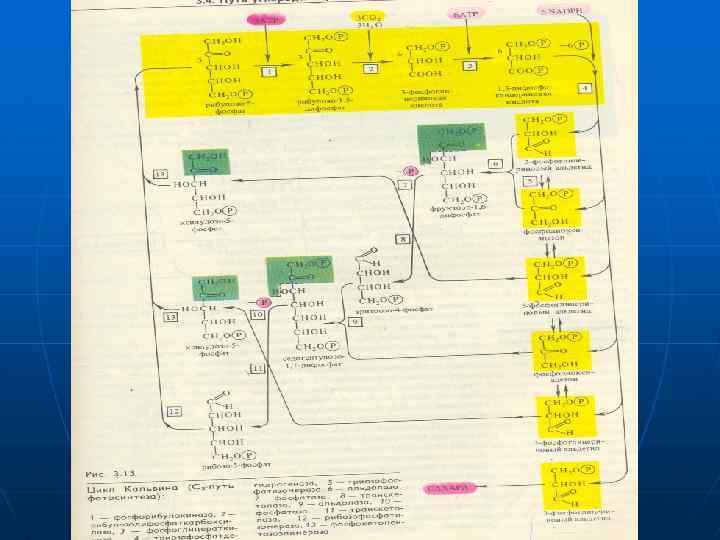 3ATP
3CO₂
3H₂O
6ATP
6 NADPH
CH₂OH
C=O
CHOH
CHOH
CH₂O(P)
рибулозо-5-
фосфат
1
CH₂O(P)
C=O
CHOH
CHOH
CH₂O(P)
рибулозо-1,5-
дифосфат
2
6
CH₂O(P)
CHOH
COOH
3-фосфогли-
цериновая
кислота
3
6
CH₂O(P)
CHOH
COO(P)
1,3-дифосфо-
глицериновая
кислота
6(P)
4
CH₂O(P)
CHOH
C
O
H
3-фосфоглице-
риновый альдегид
5
CH₂O(P)
C=O
CH₂OH
фосфодиокси-
ацетон
6
CH₂O(P)
C=O
HOCH
CHOH
CHOH
CH₂O(P)
фруктозо-1,6-
дифосфат
(P)
7
13
CH₂OH
C=O
HOCH
CHOH
CH₂O(P)
ксилулозо-5-
фосфат
8
C
O
H
CHOH
CHOH
CH₂O(P)
эритрозо-4-фосфат
9
CH₂O(P)
CHOH
C
O
H
3-фосфоглицери-
новый альдегид
CH₂O(P)
C=O
HOCH
CHOH
CHOH
CHOH
CH₂O(P)
седогептулозо-
1,7-дифосфат
(P)
10
13
CH₂OH
C=O
HOCH
CHOH
CH₂O(P)
ксилулозо-5-
фосфат
11
CH₂O(P)
C=O
CH₂OH
фосфодиокси-
ацетон
12
C
O
H
CHOH
CHOH
CHOH
CH₂O(P)
рибозо-5-фосфат
CH₂O(P)
CHOH
C
O
H
3-фосфоглицери-
новый альдегид
САХАРА
CH₂O(P)
CHOH
C
O
H
3-фосфоглицери-
новый альдегид
Рис. 3.15.
Цикл Кальвина (C₃-путь
фотосинтеза):
1 — фосфорибулокиназа, 2 —
рибулозодифосфаткарбокси-
лаза, 3 — фосфоглицераткиназа,
4 — триозофосфатде-
гидрогеназа, 5 — триозофос-
фатизомераза, 6 — альдолаза,
7 — фосфатаза, 8 — транске-
толаза, 9 — альдолаза, 10 —
фосфатаза, 11 — транскето-
лаза, 12 — рибозофосфатизо-
мераза, 13 — фосфокетопен-
тозоэпимераза